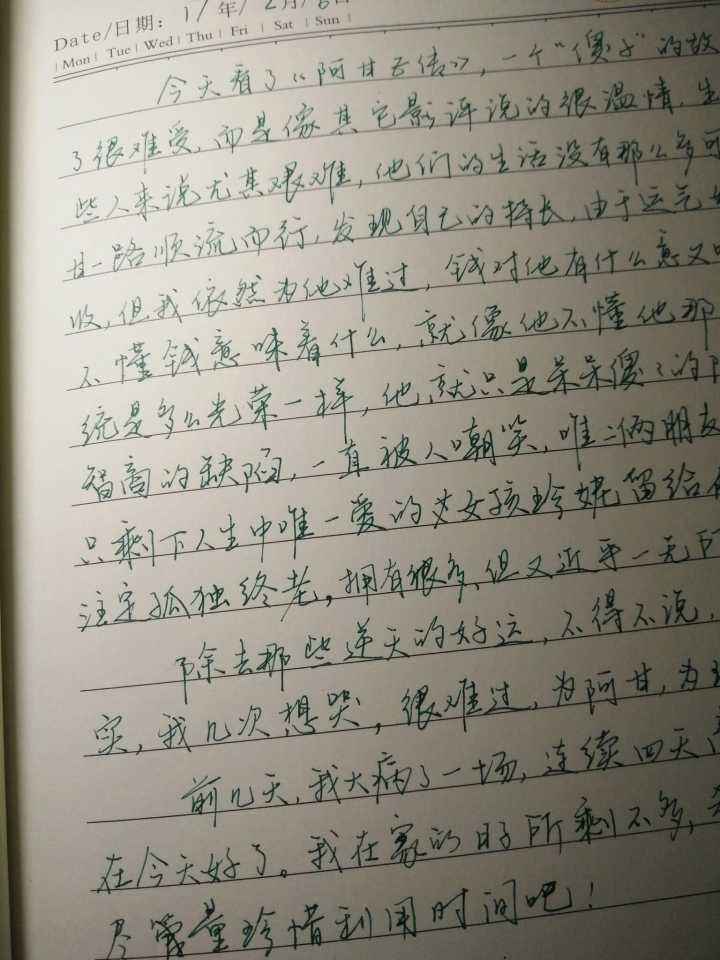 Date/日期: 17年/2月/8日
Mon Tue Wed Thu Fri Sat Sun
今天看了《阿甘正传》，一个“傻子”的故
了很难受，而是像其它影评说的很温情，生
些人来说尤其艰难，他们的生活没有那么多可
甘一路顺流而行，发现自己的特长，由于运气
收，但我依然为他难过，钱对他有什么意义呢
不懂钱意味着什么，就像他不懂他那
统是多么光荣一样，他就只是呆呆傻傻的阿
智商的缺陷，一直被人嘲笑，唯二俩朋友
只剩下人生中唯一爱的女孩珍妮留给
注定孤独终老，拥有很多，但又近乎一无所
除去那些逆天的好运，不得不说，
实，我几次想哭，很难过，为阿甘，为
前几天，我大病了一场，连续四天
在今天好了。我在家的日子所剩不多，
尽量珍惜利用时间吧！